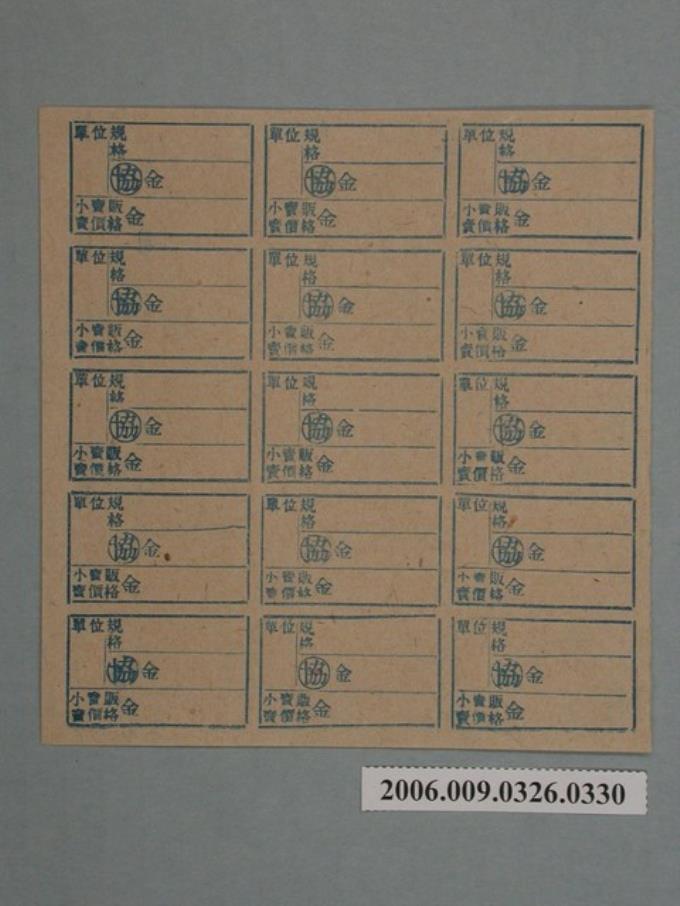 單位規
格
協金
小賣販
賣價格金
單位規
格
協金
小賣販
賣價格金
單位規
格
協金
小賣販
賣價格金
單位規
格
協金
小賣販
賣價格金
單位規
格
協金
小賣販
賣價格金
單位規
格
協金
小賣販
賣價格金
單位規
格
協金
小賣販
賣價格金
單位規
格
協金
小賣販
賣價格金
單位規
格
協金
小賣販
賣價格金
單位規
格
協金
小賣販
賣價格金
單位規
格
協金
小賣販
賣價格金
單位規
格
協金
小賣販
賣價格金
單位規
格
協金
小賣販
賣價格金
單位規
格
協金
小賣販
賣價格金
單位規
格
協金
小賣販
賣價格金
2006.009.0326.0330